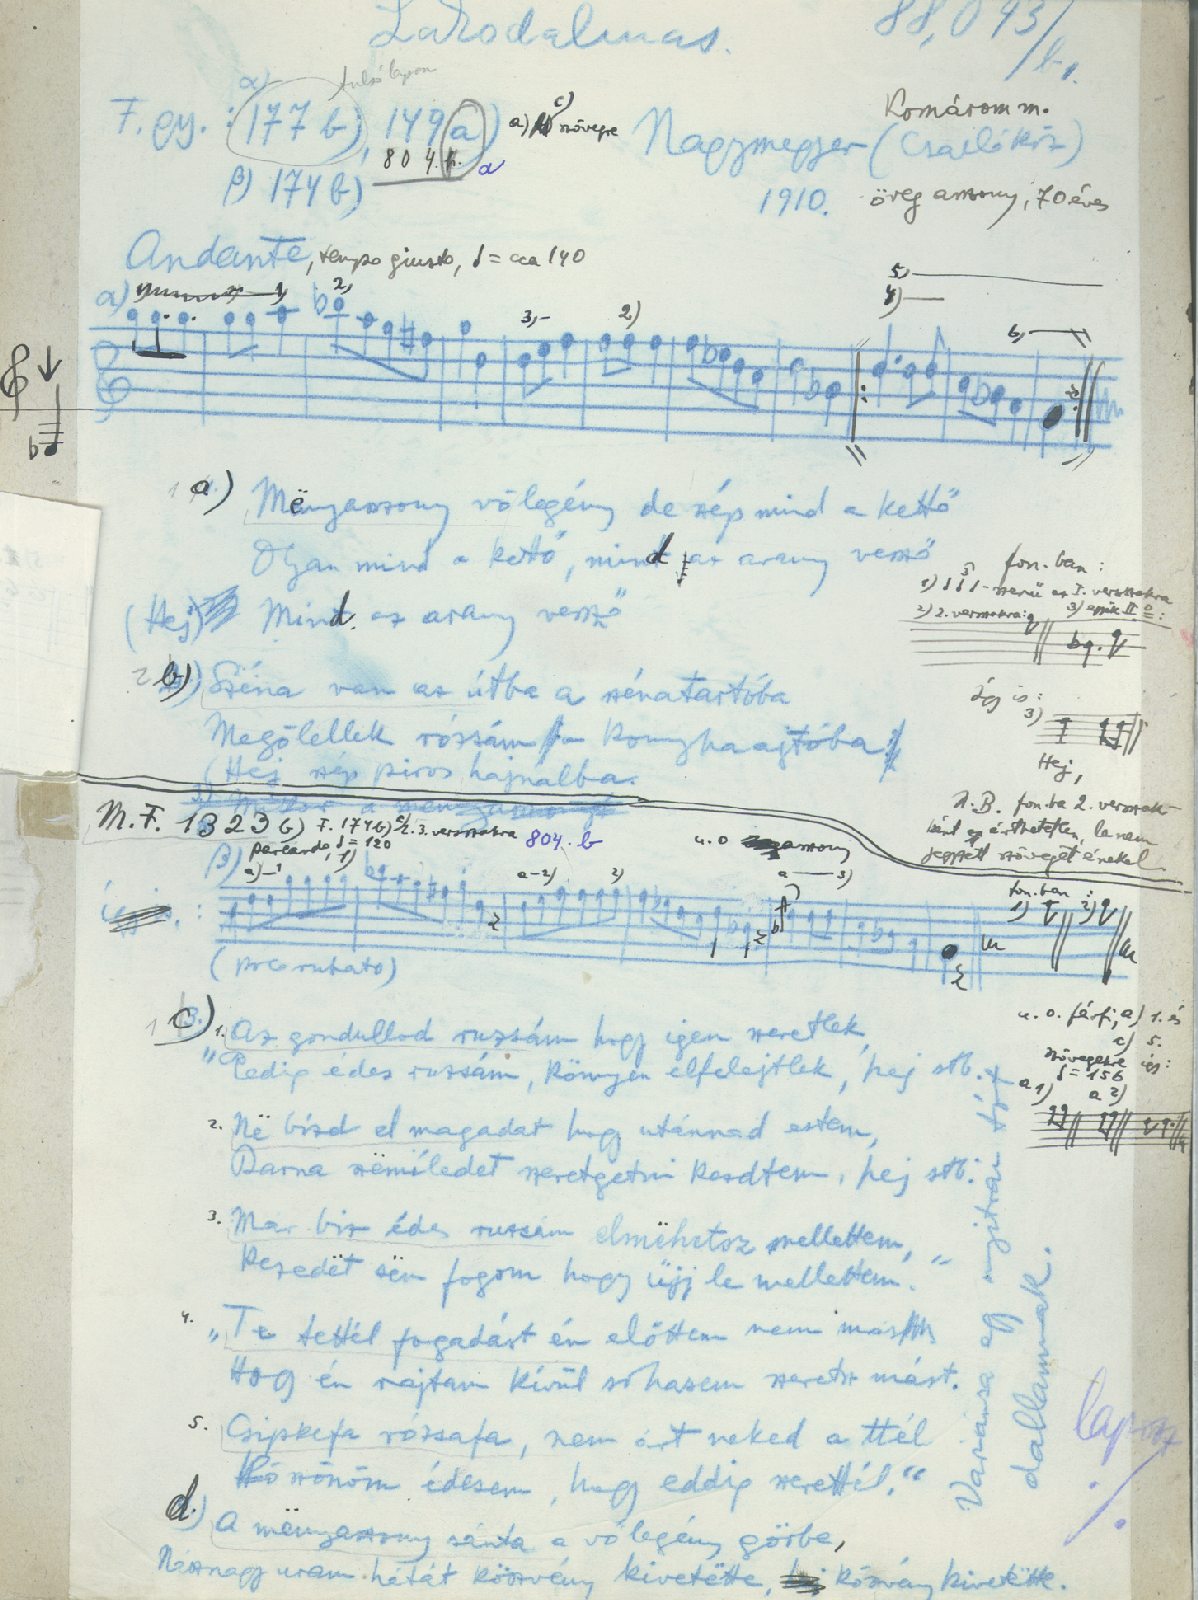 Lakodalmas.
88,093/
b,
α) tulsó lapon
F. gy.: 177 b), 149 a) a) szövegre
c)
Komárom m.
Nagymegyer (Csallóköz)
804.
β) 174 b)
1910. öreg asszony, 70 éves
Andante, tempo giusto, = cca 140
α) 2, 3, 2) 5, 4) 6,
a) Mënyasszony vőlegény de szép mind a kettő
Olyan mind a kettő, mind az arany vessző
(Hej) Mind az arany vessző
fon.-ban:
1) -szerű az I. versszakra
2) 2. versszakra: 3)
b) Széna van az útba a szénatartóba
Megölellek rózsám a konyhaajtóba
(Hej szép piros hajnalba.
így is:
3)
Hej,
N.B. fon.-ba 2. versszak-
ként egy érthetetlen, le nem
jegyzett szöveget énekel
M.F. 1323 b) F. 174 b) 2. 3. versszakra 804. b
u. o. asszony
β) parlando, = 120
a) 1) a-2) 2) a 3)
fon.-ban:
1) 2)
így is.:
(poco rubato)
c) 1. Az gondullod ruzsám hogy igen szeretlek,
"Pedig édes ruzsám, könnyen elfelejtlek, hej stb.
u. o. férfi, a) 1. és
c) 5.
szövegére így:
= 156
a 1) a 2)
2. Në bízd el magadat hogy utánnad estem,
Barna szëmiledet szeretgetni kezdtem, hej stb.
3. Már biz édes ruzsám elmëhetsz mellettem,
Kezedët sëm fogom hogy űjj le mellettem."
4. "Te tettél fogadást én előttem nem más
Hogy én rajtam kívül sohasem szeretsz mást.
5. Csipkefa rózsafa, nem árt neked a ttél
Köszönöm édesem, hogy eddig szerettél."
Variánsa egy nyitrai
dallamnak.
lapozz
d) A mënyasszony sánta a vőlegény görbe,
Násznagy uram hátát köszvény kivetëtte, köszvény kivetëtte.